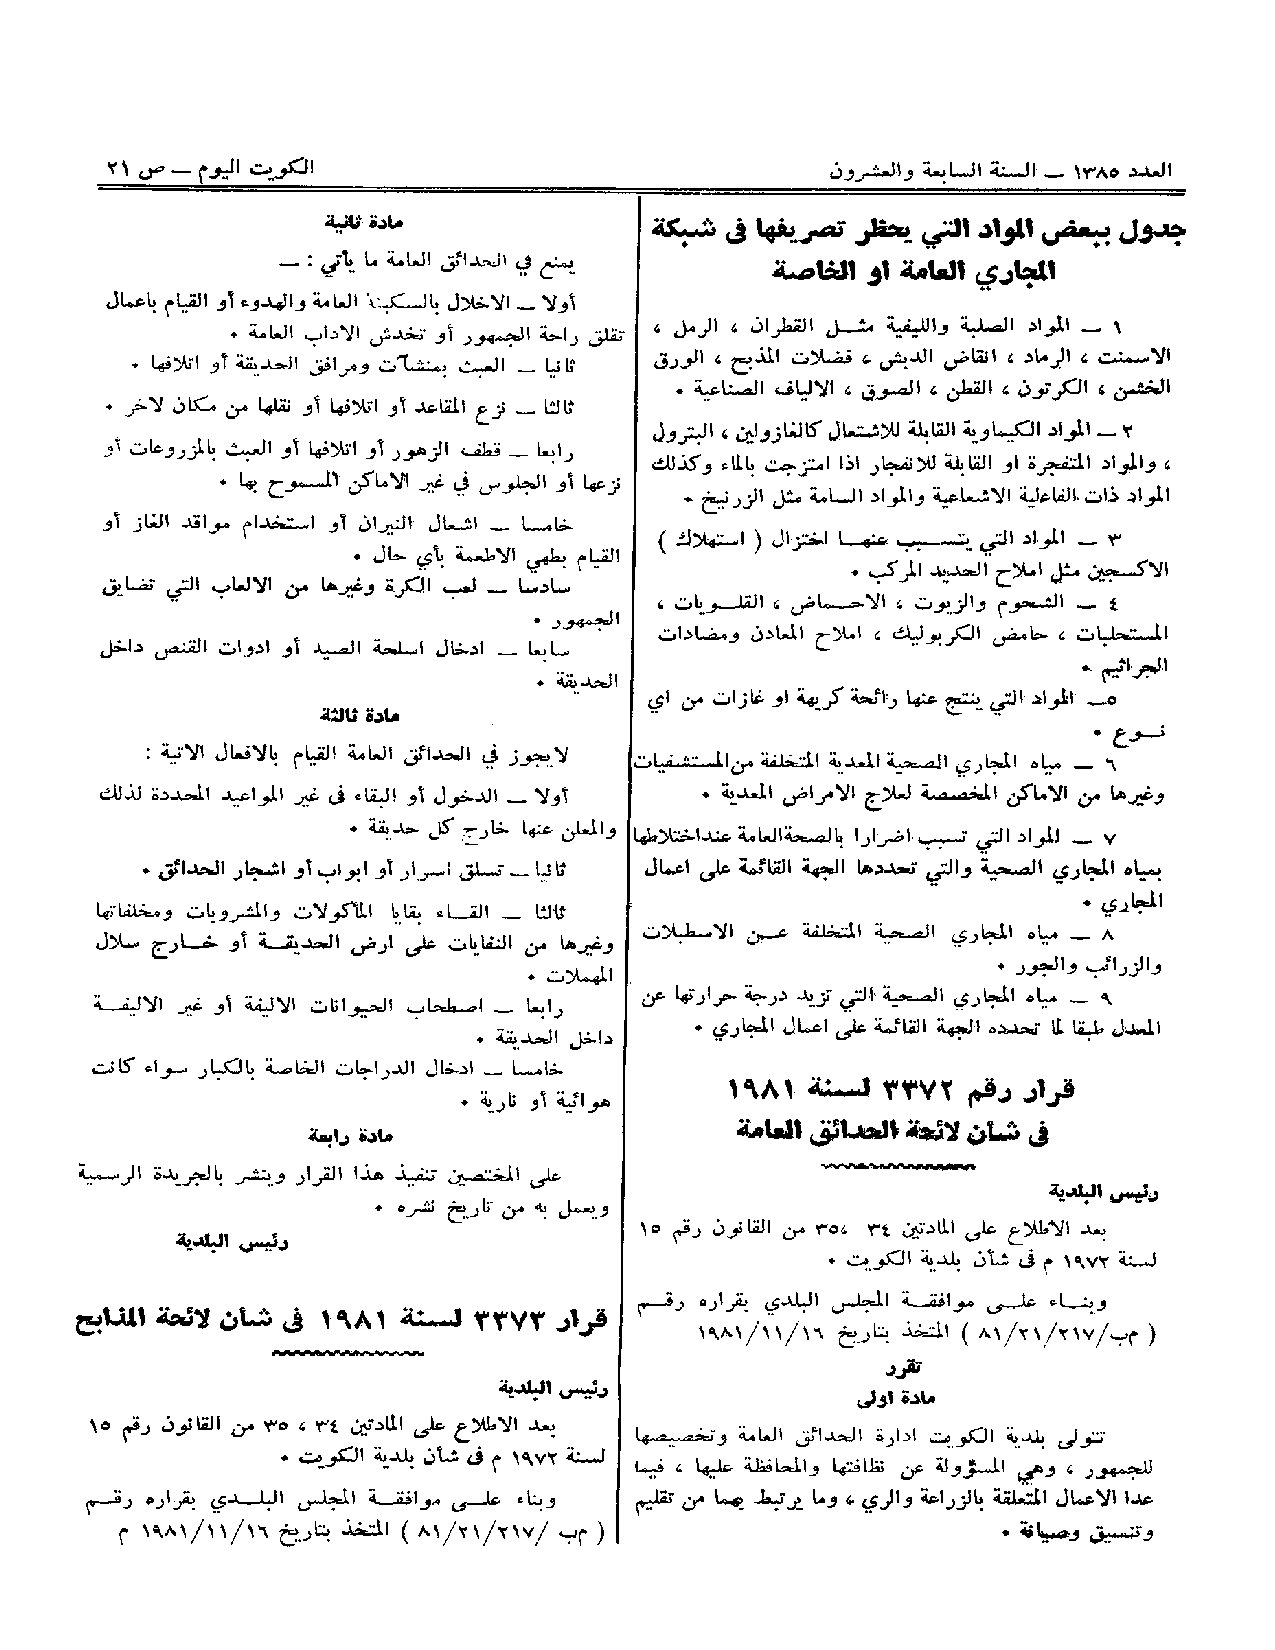 العدد ١٣٨٥ — السنة السابعة والعشرون
الكويت اليوم — ص ٢١
جدول ببعض المواد التي يحظر تصريفها فى شبكة
المجاري العامة او الخاصة
١ — المواد الصلبة والليفية مثل القطران ، الرمل ،
الاسمنت ، الرماد ، انقاض الدبش ، فضلات المذبح ، الورق
الخشن ، الكرتون ، القطن ، الصوق ، الالياف الصناعية •
٢ — المواد الكيماوية القابلة للاشتعال كالغازولين ، البترول
، والمواد المتفجرة او القابلة للانفجار اذا امتزجت بالماء وكذلك
المواد ذات الفاعلية الاشعاعية والمواد السامة مثل الزرنيخ •
٣ — المواد التي يتسبب عنها اختزال ( استهلاك )
الاكسجين مثل املاح الحديد المركب •
٤ — الشحوم والزيوت ، الاحماض ، القلويات ،
المستحلبات ، حامض الكربوليك ، املاح المعادن ومضادات
الجراثيم •
٥— المواد التي ينتج عنها رائحة كريهة او غازات من اي
نوع •
٦ — مياه المجاري الصحية المعدية المتخلفة من المستشفيات
وغيرها من الاماكن المخصصة لعلاج الامراض المعدية •
٧ — المواد التي تسبب اضرارا بالصحة العامة عند اختلاطها
بمياه المجاري الصحية والتي تحددها الجهة القائمة على اعمال
المجاري •
٨ — مياه المجاري الصحية المتخلفة عن الاسطبلات
والزرائب والجور •
٩ — مياه المجاري الصحية التي تزيد درجة حرارتها عن
المعدل طبقا لما تحدده الجهة القائمة على اعمال المجاري •
قرار رقم ٣٣٧٢ لسنة ١٩٨١
فى شأن لائحة الحدائق العامة
رئيس البلدية
بعد الاطلاع على المادتين ٣٤ ،٣٥ من القانون رقم ١٥
لسنة ١٩٧٢ م فى شأن بلدية الكويت •
وبناء على موافقة المجلس البلدي بقراره رقم
( م ب/٢١٧/٢١/٨١ ) المتخذ بتاريخ ١٩٨١/١١/١٦
تقرر
مادة اولى
تتولى بلدية الكويت ادارة الحدائق العامة وتخصيصها
للجمهور ، وهي المسؤولة عن نظافتها والمحافظة عليها ، فيما
عدا الاعمال المتعلقة بالزراعة والري ، وما يرتبط بهما من تقليم
وتنسيق وصيانة •
مادة ثانية
يمنع في الحدائق العامة ما يأتي : —
أولا — الاخلال بالسكينة العامة والهدوء أو القيام باعمال
تقلق راحة الجمهور أو تخدش الاداب العامة •
ثانيا — العبث بمنشآت ومرافق الحديقة أو اتلافها •
ثالثا — نزع المقاعد أو اتلافها أو نقلها من مكان لاخر •
رابعا — قطف الزهور أو اتلافها أو العبث بالمزروعات أو
نزعها أو الجلوس في غير الاماكن المسموح بها •
خامسا — اشعال النيران أو استخدام مواقد الغاز أو
القيام بطهي الاطعمة بأي حال •
سادسا — لعب الكرة وغيرها من الالعاب التي تضايق
الجمهور •
سابعا — ادخال اسلحة الصيد أو ادوات القنص داخل
الحديقة •
مادة ثالثة
لايجوز في الحدائق العامة القيام بالافعال الاتية :
أولا — الدخول أو البقاء فى غير المواعيد المحددة لذلك
والمعلن عنها خارج كل حديقة •
ثانيا — تسلق اسرار أو ابواب أو اشجار الحدائق •
ثالثا — القاء بقايا المأكولات والمشروبات ومخلفاتها
وغيرها من النفايات على ارض الحديقة أو خارج سلال
المهملات •
رابعا — اصطحاب الحيوانات الاليفة أو غير الاليفة
داخل الحديقة •
خامسا — ادخال الدراجات الخاصة بالكبار سواء كانت
هوائية أو نارية •
مادة رابعة
على المختصين تنفيذ هذا القرار وينشر بالجريدة الرسمية
ويعمل به من تاريخ نشره •
رئيس البلدية
قرار ٣٣٧٣ لسنة ١٩٨١ فى شأن لائحة المذابح
رئيس البلدية
بعد الاطلاع على المادتين ٣٤ ، ٣٥ من القانون رقم ١٥
لسنة ١٩٧٢ م فى شأن بلدية الكويت •
وبناء على موافقة المجلس البلدي بقراره رقم
( م ب /٢١٧/٢١/٨١ ) المتخذ بتاريخ ١٩٨١/١١/١٦ م